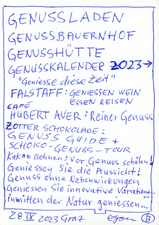 GENUSSLADEN
GENUSSBAUERNHOF
GENUSSHÜTTE
GENUSSKALENDER 2023→
"Geniesse diese Zeit"
FALSTAFF: GENIESSEN WEIN
ESSEN REISEN
CAFÉ
HUBERT AUER: Reiner Genuss
ZOTTER SCHOKOLADE:
GENUSS GUIDE +
SCHOKO-GENUSS-TOUR
Kakao Bohnen: Vor Genuss schälen!
Geniessen Sie die Aussicht!
Genuss ohne Nebenwirkungen
Geniessen Sie innovative Variationen
Inmitten der Natur geniessen...!
28 IX 2023 Graz Egon B